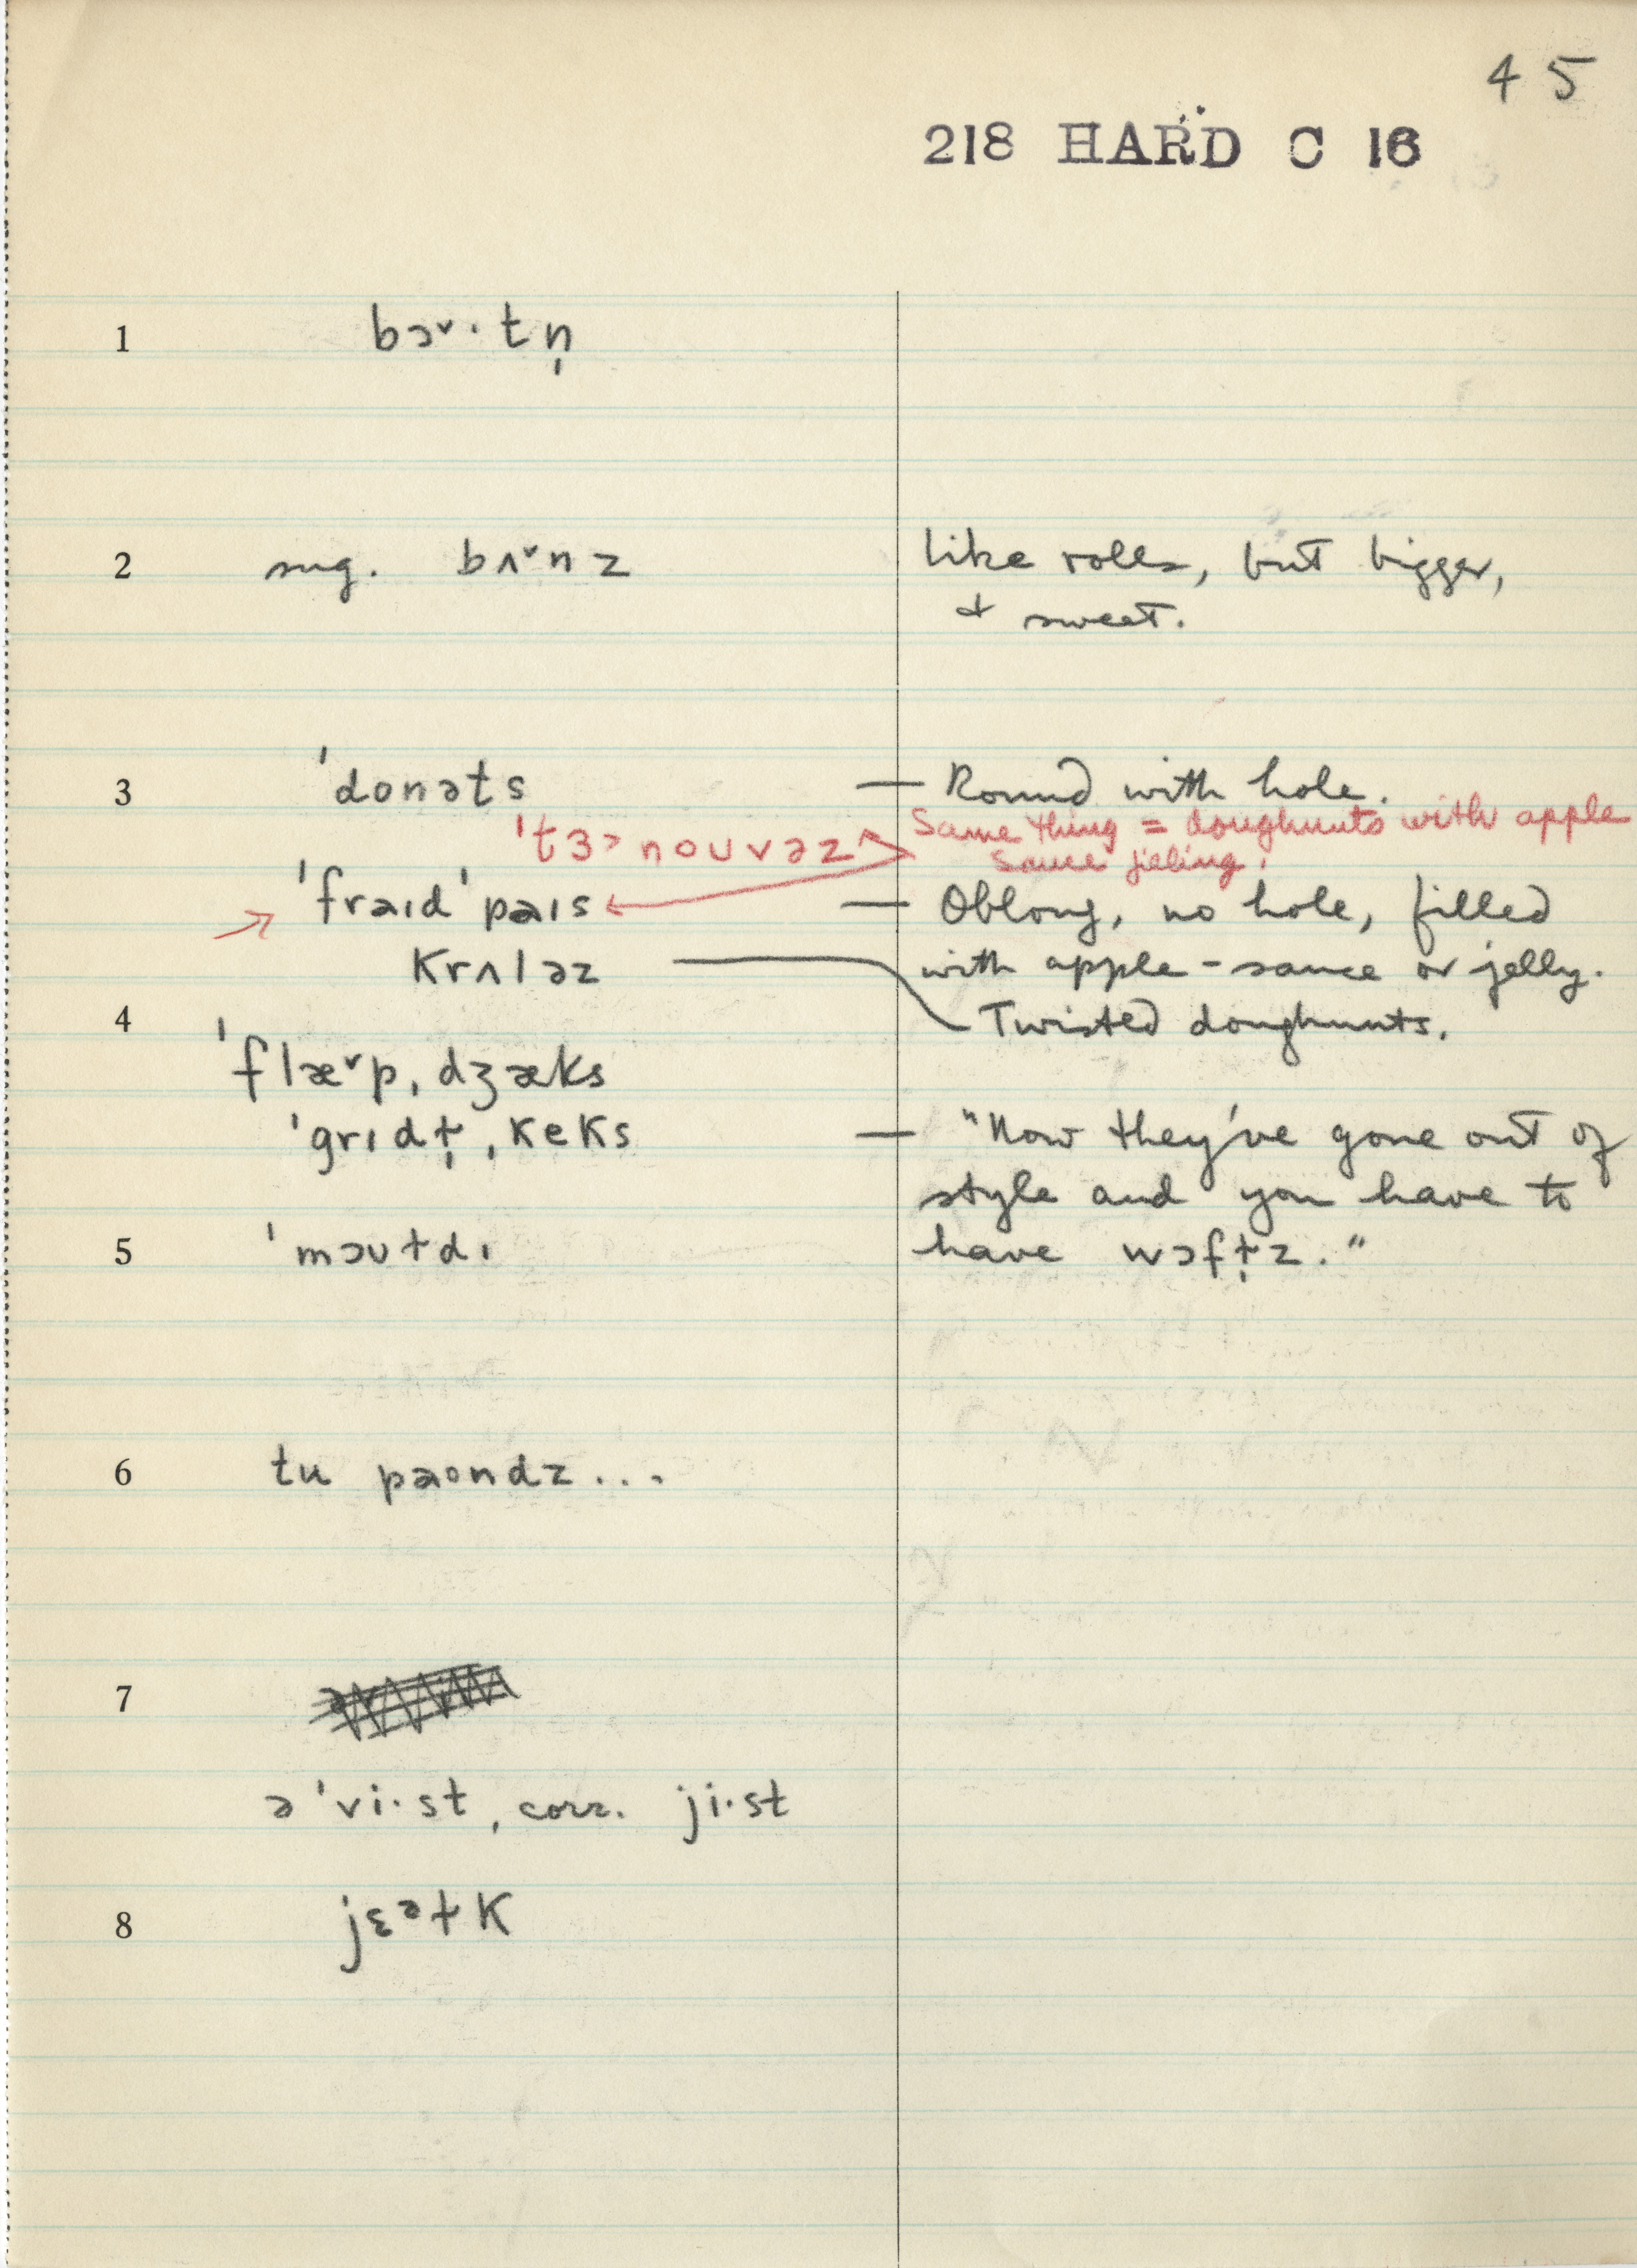 45
218 HARD C 16
1 bɔ˅·tn̩
2 sug. bʌ˅nz like rolls, but bigger,
& sweet.
3 ˈdonəts — Round with hole.
ˈtɜ˃nouvəz Same thing = doughnuts with apple
sauce filling.
ˈfraɪdˈpaɪs — Oblong, no hole, filled
krʌləz with apple-sauce or jelly.
4 Twisted doughnuts.
ˈflæ˅pˌdʒæks
ˈgrɪdɫ̩ˌkeks — "Now they've gone out of
style and you have to
5 ˈmɔʊɫdɪ have wɔfɫ̩z."
6 tu paondz...
7
əˈvi·st, corr. ji·st
8 jɛᵊɫk